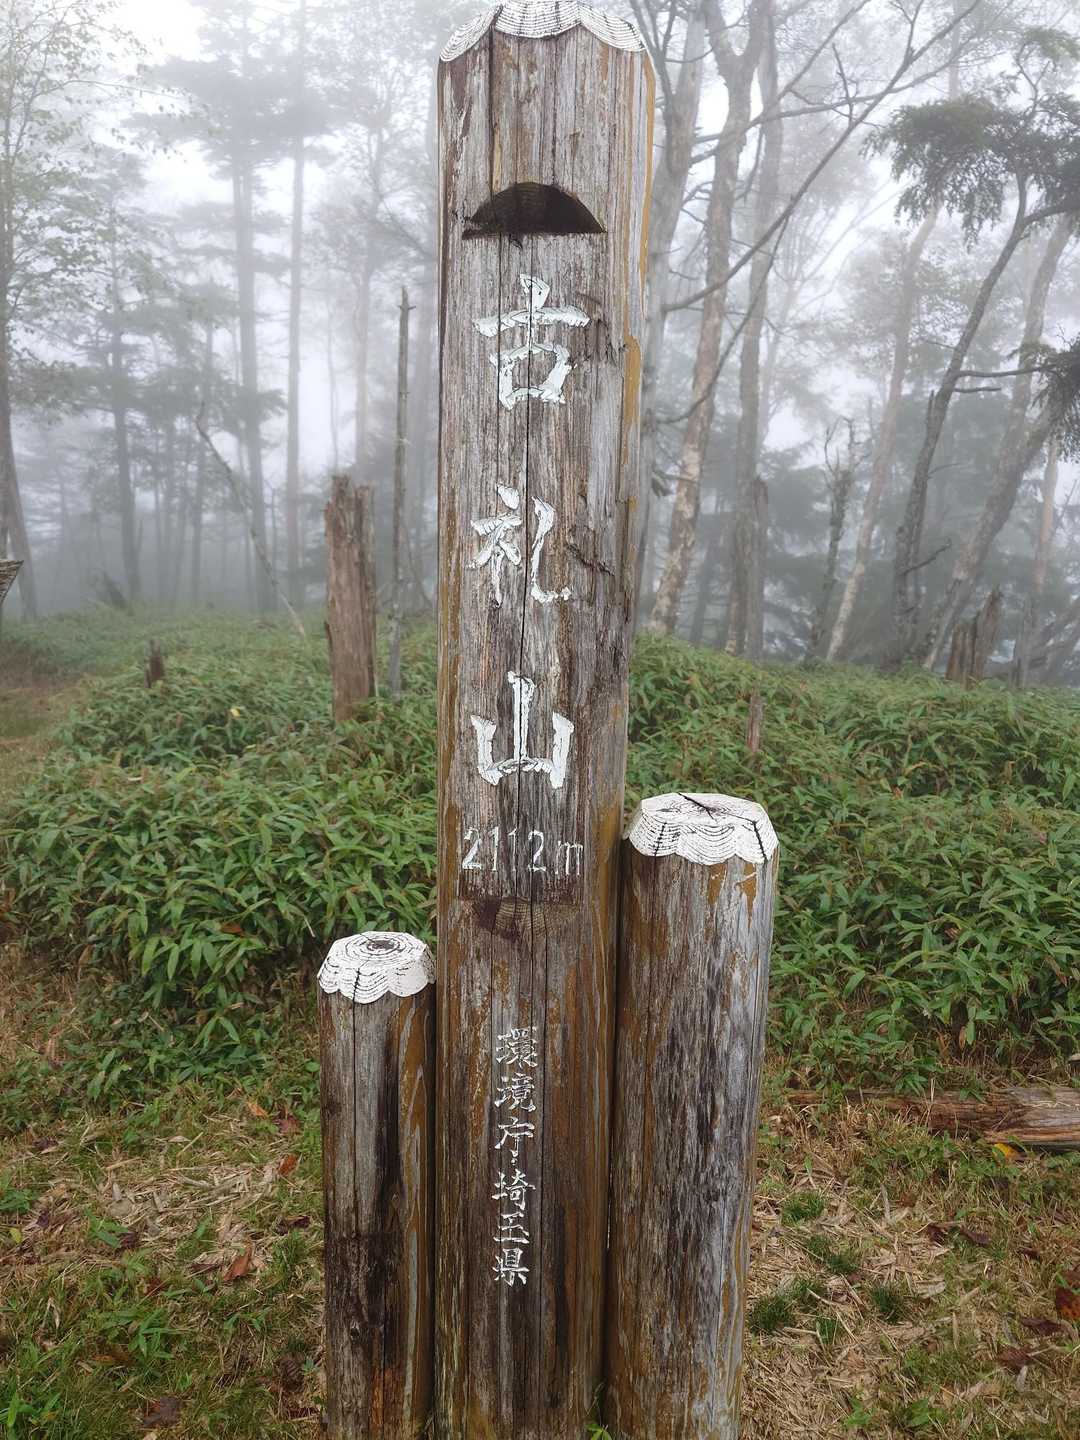 古礼山
2112m
環境庁埼玉県